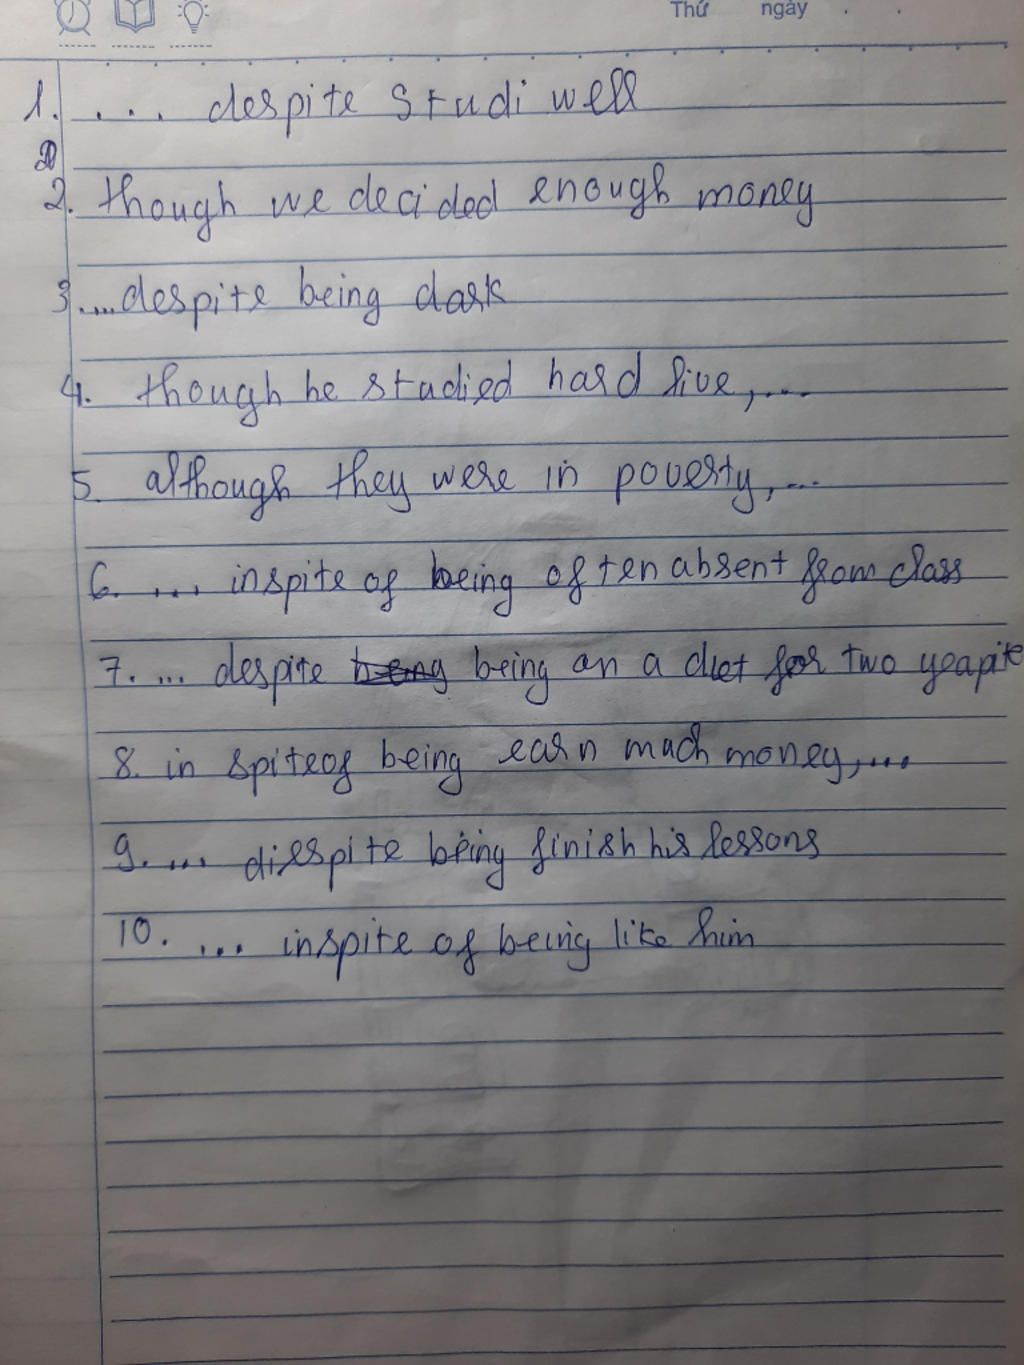 Thứ ngày . .
1. ... despite studi well
2. though we decided enough money
3. ... despite being dark
4. though he studied hard live, ...
5. although they were in poverty, ...
6. ... inspite of being often absent from class
7. ... despite being an a diet for two
8. in spite of being earn much money, ...
9. ... diespite being finish his lessons
10. ... inspite of being like him